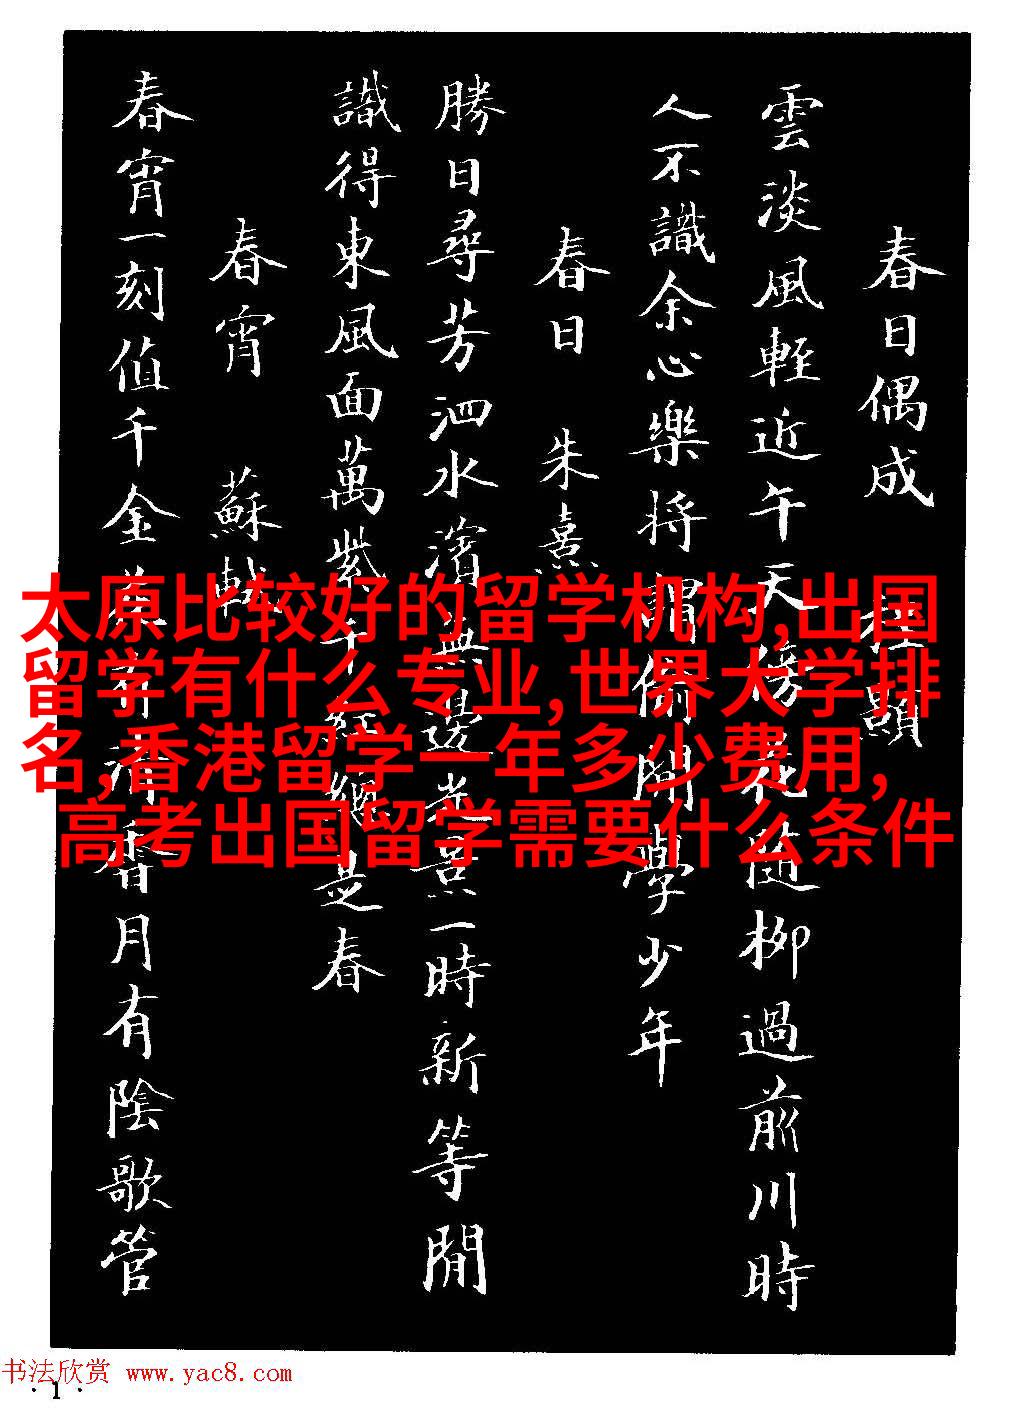 春日偶成 程顥
雲淡風輕近午天傍花隨柳過前川時
人不識余心樂将謂偷閒學少年
春日 朱熹
勝日尋芳泗水濱無邊光景一時新等閒
識得東風面萬紫千紅總是春
春宵 蘇軾
春宵一刻值千金花有清香月有陰歌管
太原比较好的留学机构,出国
留学有什么专业,世界大学排
名,香港留学一年多少费用,
高考出国留学需要什么条件
书法欣赏 www.yac8.com
·1·